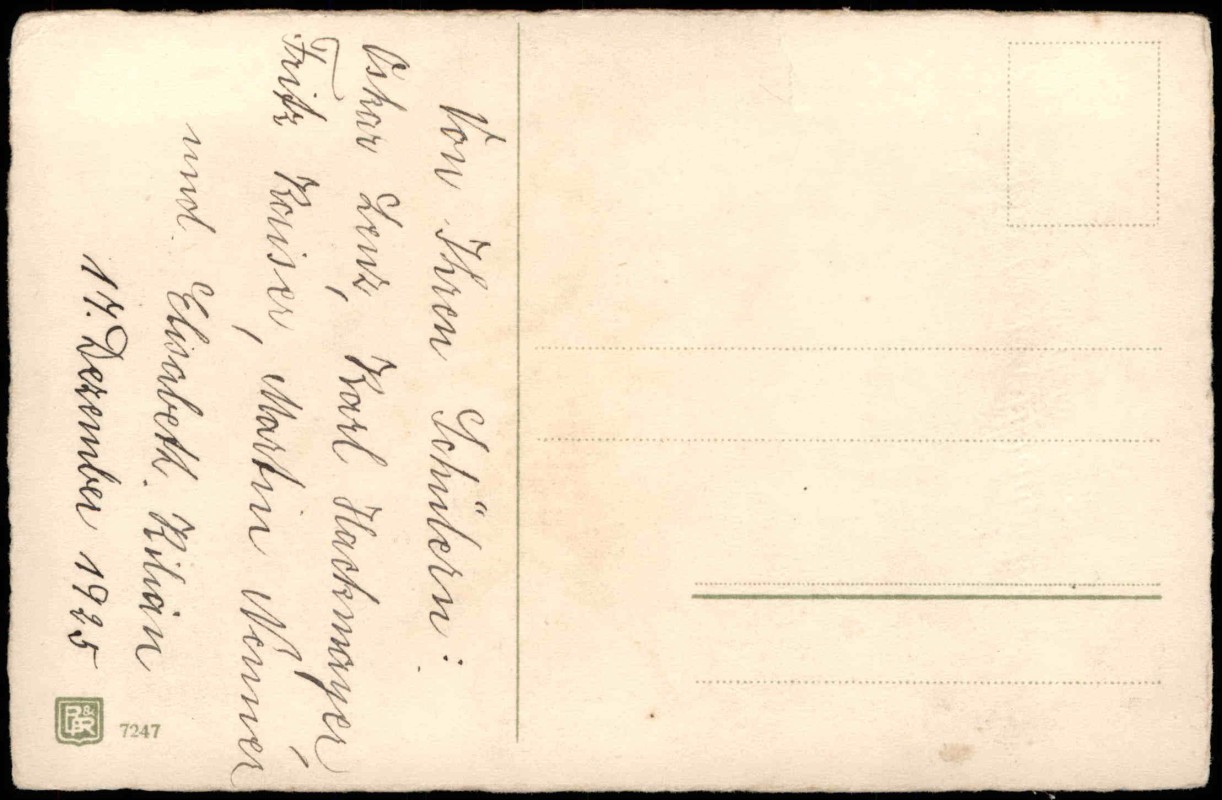 Von Ihren Schülern:
Oskar Lenz, Karl Hackmayer,
Fritz Kaiser, Martin Nonner
und Elisabeth Kilian
17. Dezember 1925
7247